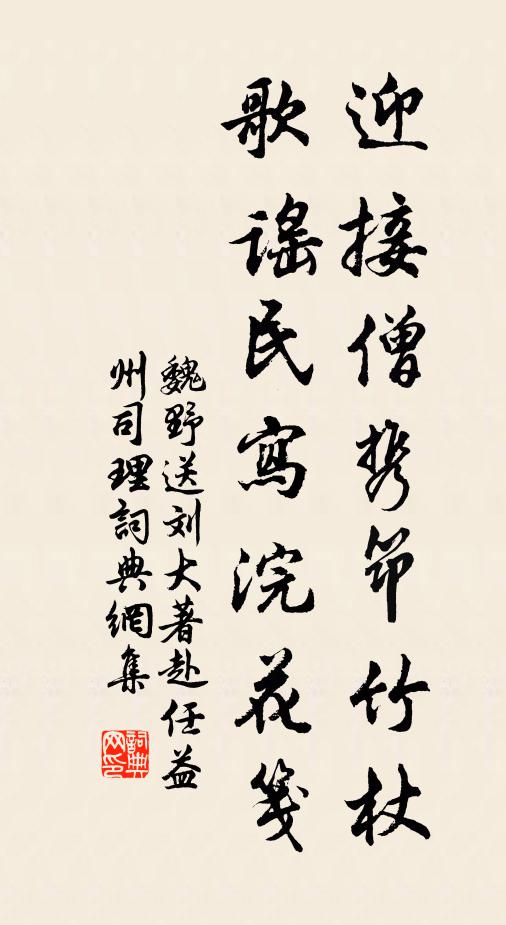 迎接僧携笻竹杖
歌謠民寫浣花箋
魏野送刘大著赴任益
州司理詞典網集
詞典网印